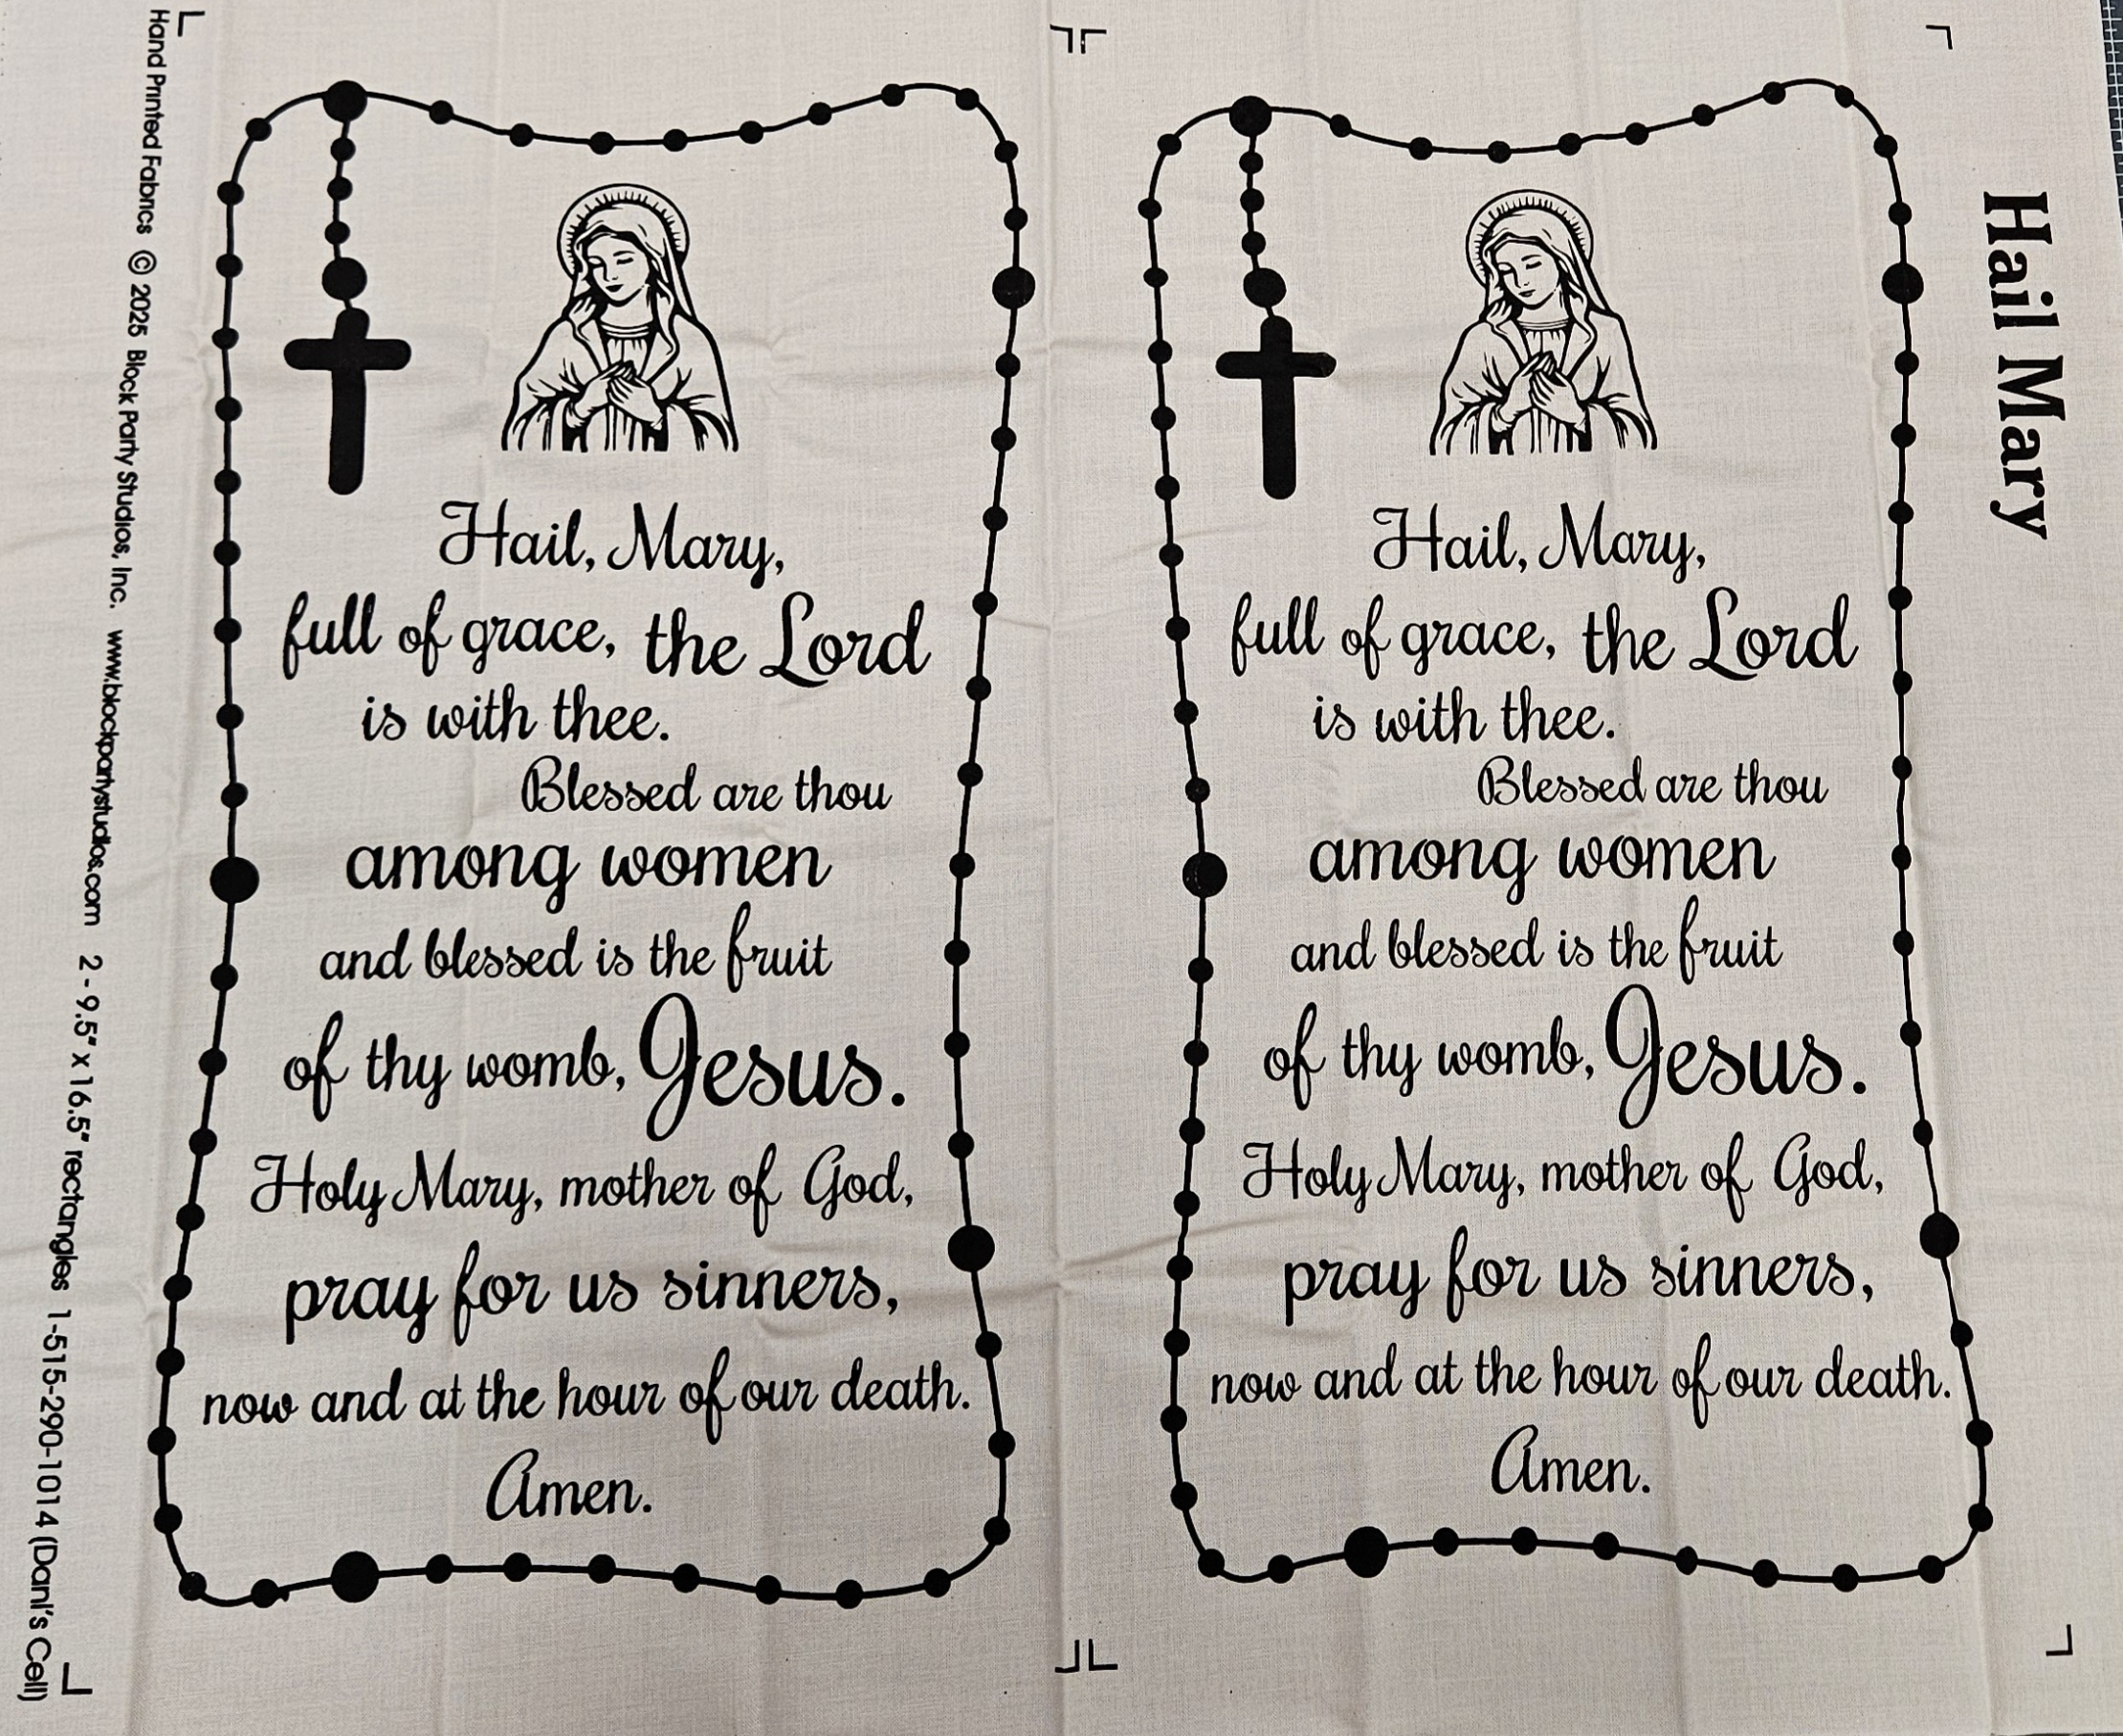 Hand Printed Fabrics © 2025 Block Party Studios, Inc. www.blockpartystudios.com 2 - 9.5" x 16.5" rectangles 1-515-290-1014 (Dani's Cell)
Hail, Mary,
full of grace, the Lord
is with thee.
Blessed are thou
among women
and blessed is the fruit
of thy womb, Jesus.
Holy Mary, mother of God,
pray for us sinners,
now and at the hour of our death.
Amen.
Hail, Mary,
full of grace, the Lord
is with thee.
Blessed are thou
among women
and blessed is the fruit
of thy womb, Jesus.
Holy Mary, mother of God,
pray for us sinners,
now and at the hour of our death.
Amen.
Hail Mary